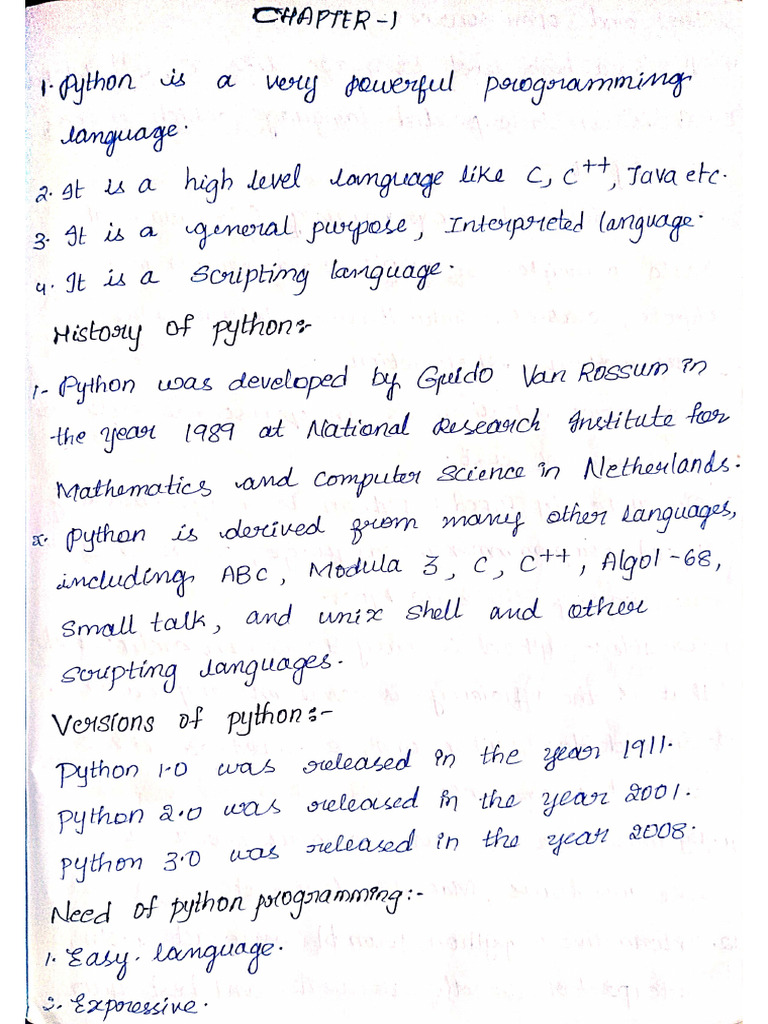 CHAPTER-1
1. Python is a very powerful programming
language.
2. It is a high level language like C, C++, Java etc.
3. It is a general purpose, Interpreted language.
4. It is a Scripting language.
History of python:-
1- Python was developed by Guido Van Rossum in
the year 1989 at National Research Institute for
Mathematics and Computer Science in Netherlands.
2. Python is derived from many other languages,
including ABC, Modula 3, C, C++, Algol-68,
Small talk, and unix shell and other
scripting languages.
Versions of python:-
Python 1.0 was released in the year 1911.
Python 2.0 was released in the year 2001.
Python 3.0 was released in the year 2008.
Need of python programming:-
1. Easy language.
2. Expressive.